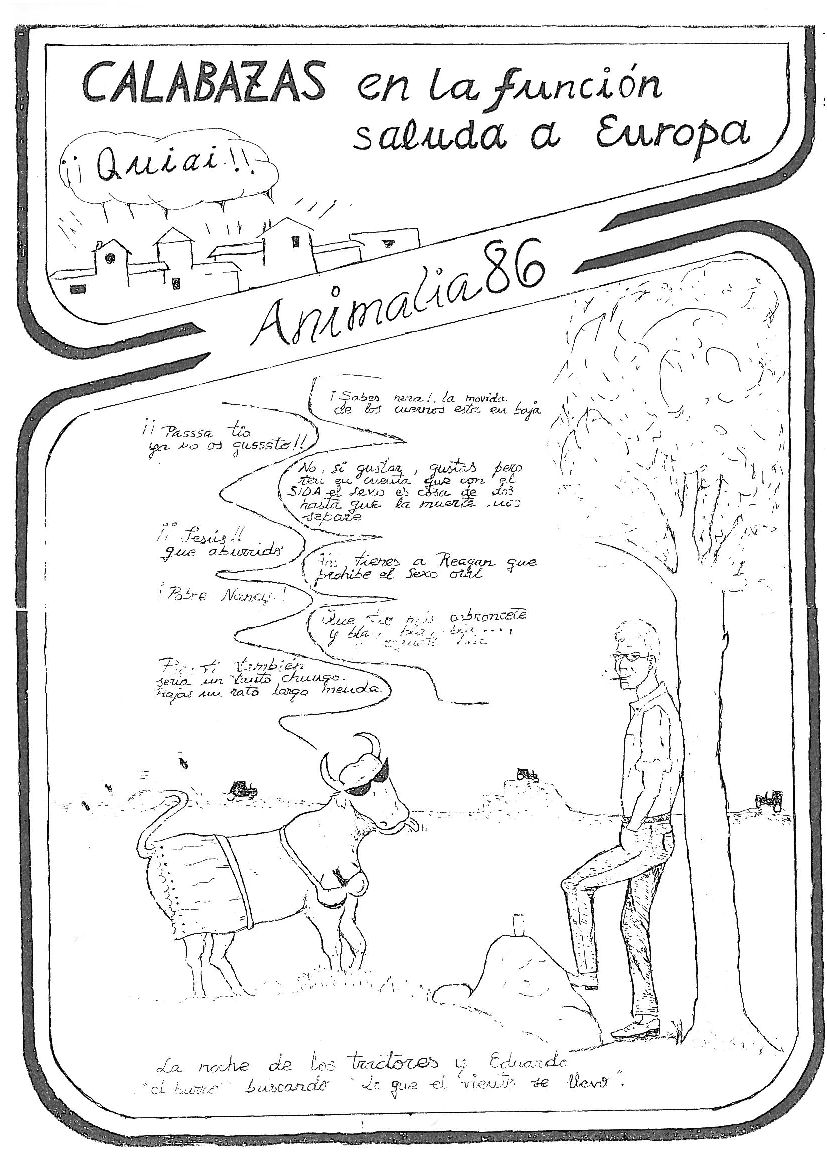 CALABAZAS en la función
saluda a Europa
¡¡Quiai!!
Animalia 86
¡Sabes nena!, la movida
de los cuernos esta en baja
¡¡Passsa tio
ya no os gusssto!!
No, si gustar, gustas pero
ten en cuenta que con el
SIDA el sexo es cosa de dos
hasta que la muerte nos
separe
¡¡Jesús!!
que aburrido
tienes a Reagan que
prohibe el sexo oral
¡Pobre Nancy!
Que tio más abroncete
y bla, bla, bla ...,
también
seria un tanto chungo.
un rato largo menda
La noche de los tractores y Eduardo
"el burro" buscando "Lo que el viento se llevó".